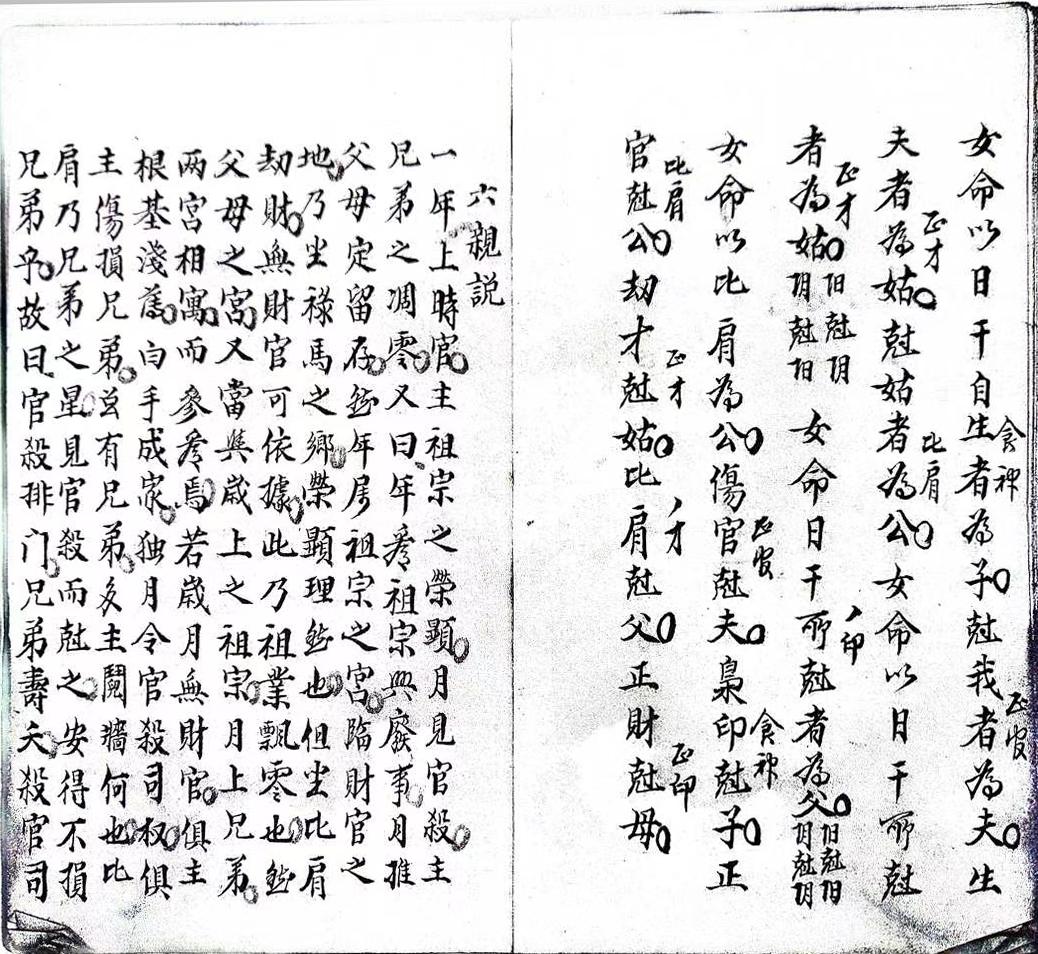 食神 正官
女命以日干自生者為子尅我者為夫生
正才 比肩
夫者為姑尅姑者為公女命以日干所尅
正才 丿印
者為姑阳尅阴阴尅阳 女命日干所尅者為父阳尅阳阴尅阴
正官 食神
女命以比肩為公傷官尅夫梟印尅子正
比肩 正才 丿才 正印
官尅公劫才尅姑比肩尅父正財尅母
六親説
一年上時官主祖宗之榮顯月見官殺主
兄弟之凋零又曰年看祖宗興廢事月推
父母定留存然年居祖宗之宮臨財官之
地乃坐祿馬之鄉榮顯理然也但坐比肩
劫財無財官可依據此乃祖業飄零也然
父母之宮又當與歲上之祖宗月上兄弟
兩宮相寓而參看焉若歲月無財官俱主
根基淺薄白手成家独月令官殺司权俱
主傷損兄弟豈有兄弟多主鬩牆何也比
肩乃兄弟之星見官殺而尅之安得不損
兄弟乎故曰官殺排门兄弟壽夭殺官司